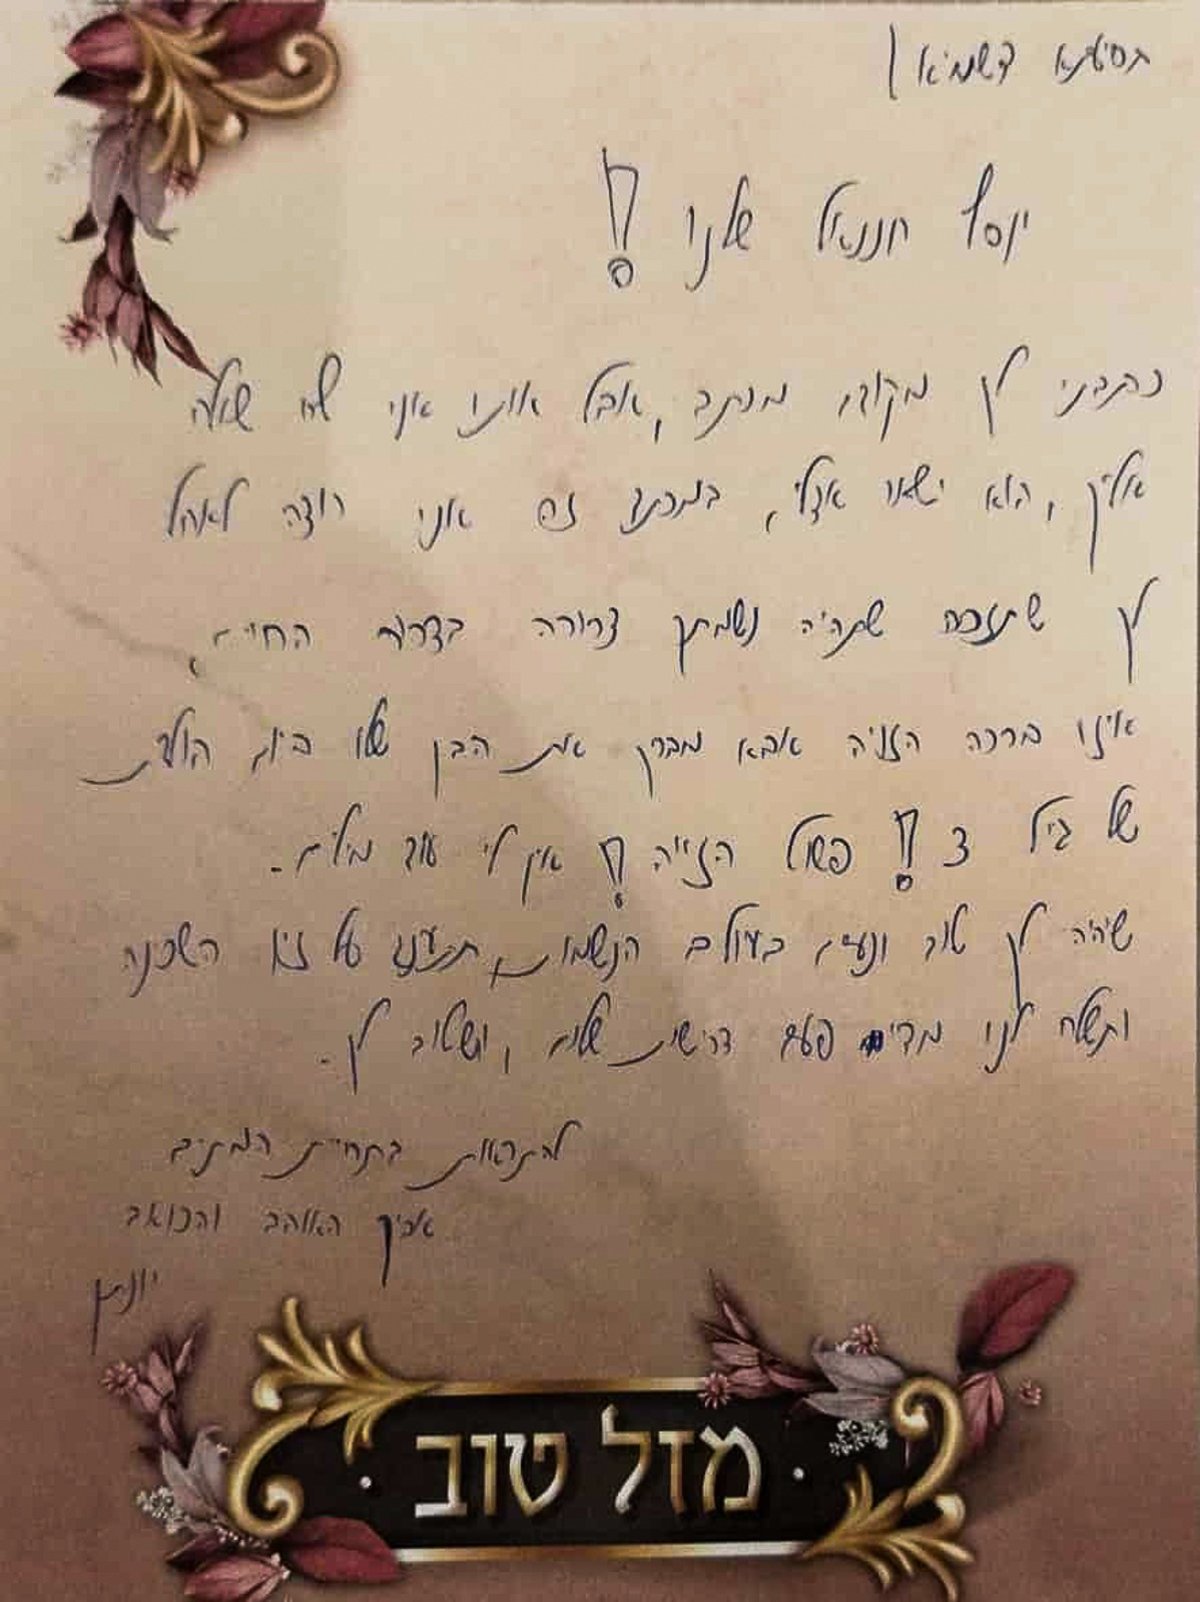 בסיעתא דשמיא!
יוסף חננאל שלנו!
כתבתי לך מקודם מכתב, אבל אותו אני לא שולח
אליך, הוא ישאר אצלי, במכתב זה אני רוצה לאחל
לך שתזכה שתהיה נשמתך צרורה בצרור החיים,
איזו ברכה הזויה אבא מברך את הבן שלו ביום הולדת
של גיל 3! פשוט הזוייה! אין לי עוד מילים.
שיהיה לך טוב ונעים בעולם הנשמות, תתענג על זיו השכינה
ותשלח לנו מדי פעם דרישת שלום, שטוב לך.
להתראות בתחיית המתים
אביך האוהב והכואב
יונתן
מזל טוב